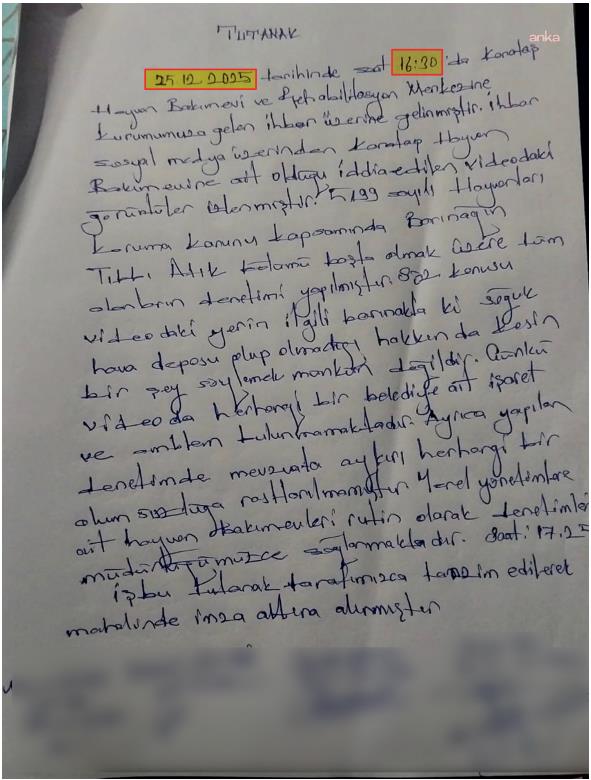 anka
TUTANAK
25.12.2025 tarihinde saat 16:30'da Karatap
Hayvan Bakımevi ve Rehabilitasyon Merkezine
kurumumuza gelen ihbar üzerine gelinmiştir. ihbar
sosyal medya üzerinden Karatap Hayvan
Bakımevine ait olduğu iddia edilen videodaki
görüntüler izlenmiştir. 5199 sayılı Hayvanları
Koruma Kanunu kapsamında Barınağın
Tıbbi Atık bölümü başta olmak üzere tüm
alanların denetimi yapılmıştır. Söz konusu
videodaki yerin ilgili barınakta ki soğuk
hava deposu olup olmadığı hakkında kesin
bir şey söylemek mümkün değildir. Çünkü
videoda herhangi bir belediye ait işaret
ve amblem bulunmamaktadır. Ayrıca yapılan
denetimde mevzuata aykırı herhangi bir
olumsuzluğa rastlanılmamıştır. Yerel yönetimlere
ait hayvan Bakımevleri rutin olarak denetimleri
müdürlüğümüzce sağlanmaktadır. Saat: 17.25
işbu tutanak tarafımızca tanzim edilerek
mahalinde imza altına alınmıştır